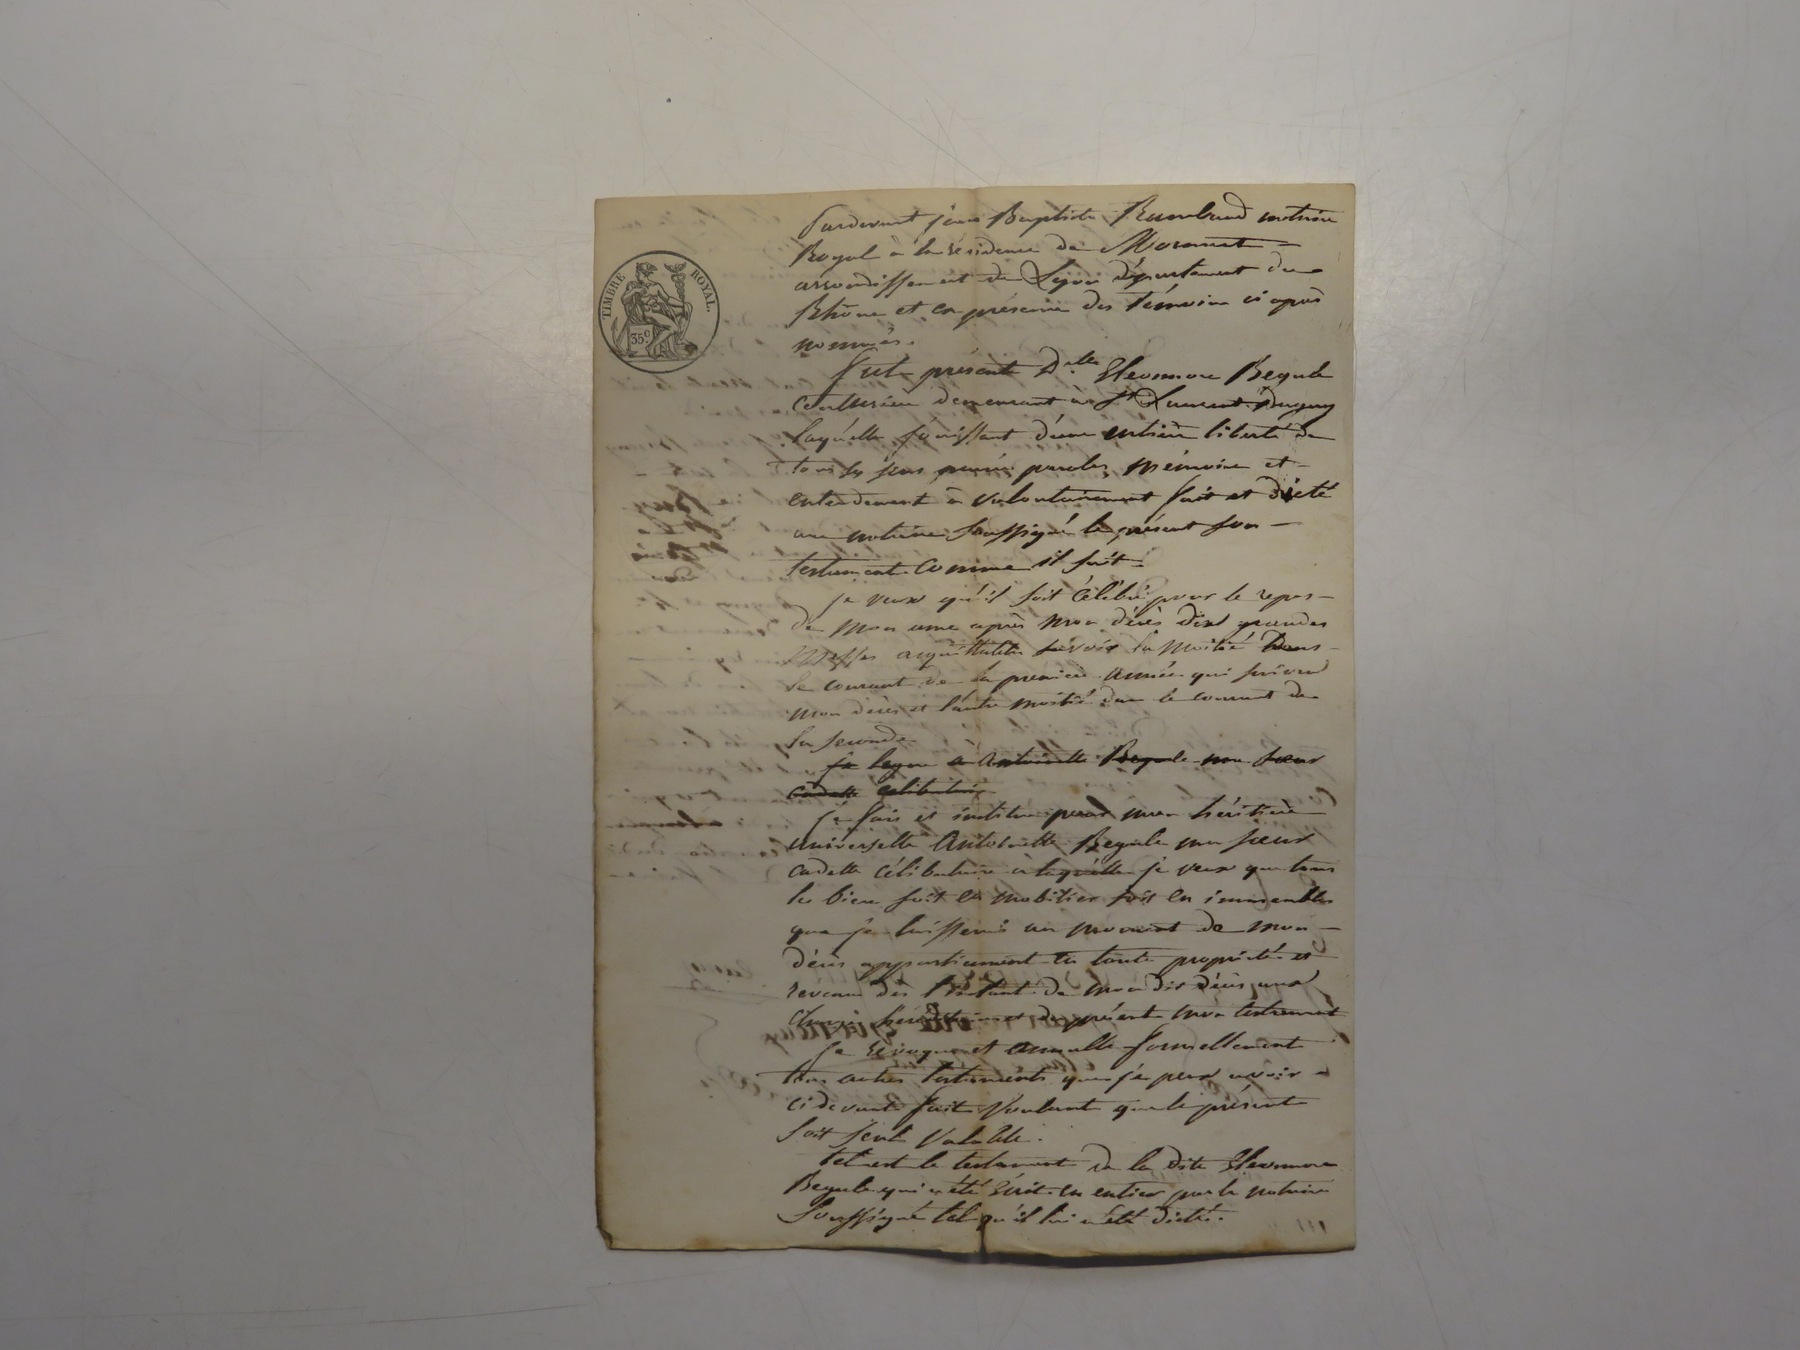 TIMBRE ROYAL.
35 c
Pardevant jean Baptiste Rambaud notaire
Royal à la résidence de Mornant
arrondissement de Lyon département du
Rhône et en présence des témoins ci après
nommés.
fut présente D.lle Eleonnore Begule
couturière demeurant à St Laurent d'agny
laquelle jouissant d'une entière liberté de
tous ses sens parolles mémoire et
entendement à volontairement fait et dicté
au notaire soussigné le présent son
testament comme il suit.
je veux qu'il soit célébré pour le repos
de mon ame après mon décès dix grandes
Messes acquittables savoir la moitié dans
le courant de la première année qui suivra
mon décès et l'autre moitié dans le courant de
la seconde
je legue à Antoinette Begule ma sœur
cadette celibataire
je fais et institue pour mon héritière
universelle Antoinette Begule ma sœur
cadette célibataire à laquelle je veux que tous
les biens soit en mobilier soit en immeubles
que je laisserai au moment de mon
décès appartiennent en toute propriété et
revenu dès l'instant de mon dit décès
présent mon testament
je révoque et annulle formellement
tous autres testaments que je peux avoir
ci devant fait voulant que le présent
soit seul valable.
tel est le testament de la dite Eleonnore
Begule qui a été écrit en entier par le notaire
soussigné tel qu'il lui a été dicté.